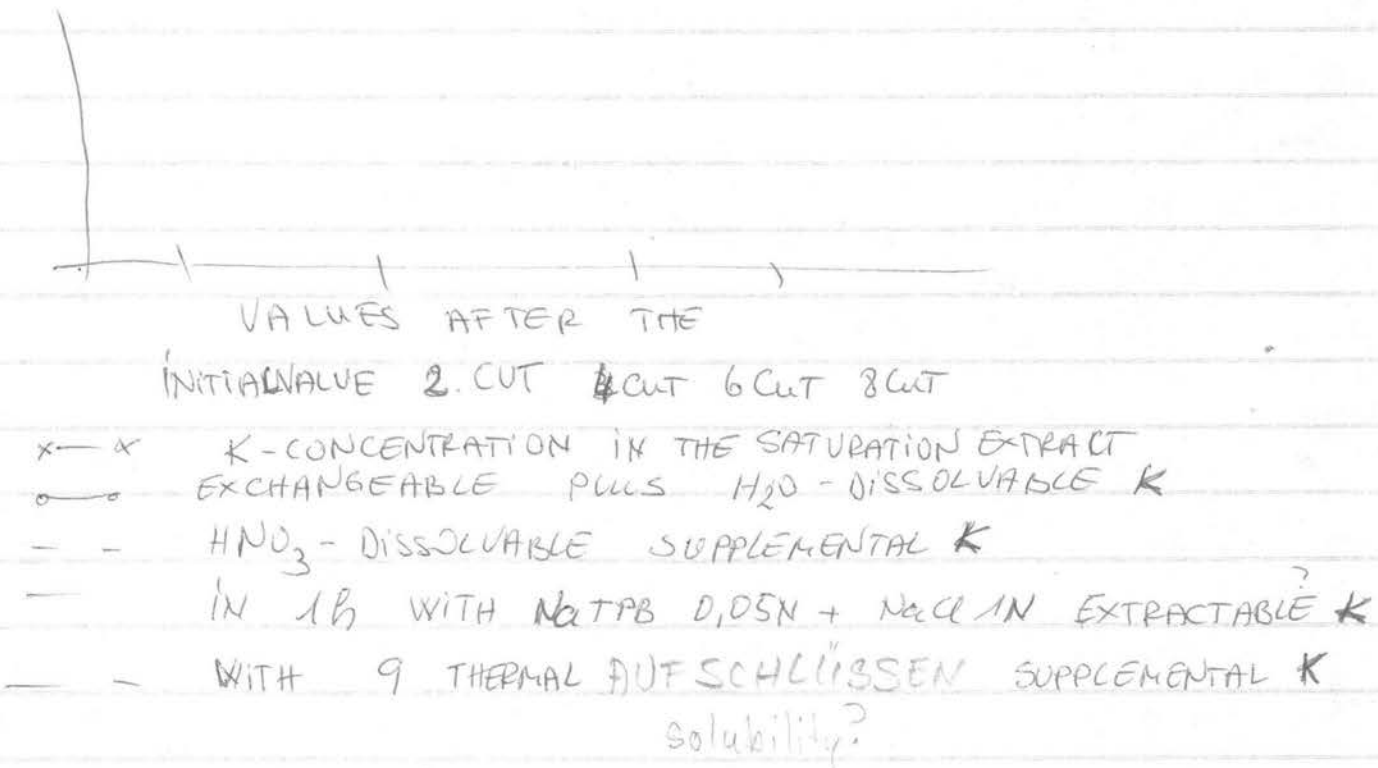 VALUES AFTER THE
INITIALVALUE 2. CUT 4 CUT 6 CUT 8 CUT
x—x K-CONCENTRATION IN THE SATURATION EXTRACT
o—o EXCHANGEABLE PLUS H2O-DISSOLVABLE K
– – HNO3-DISSOLVABLE SUPPLEMENTAL K
— IN 1h WITH NaTPB 0,05N + NaCl 1N EXTRACTABLE ? K
— – WITH 9 THERMAL AUFSCHLÜSSEN SUPPLEMENTAL K
solubility?